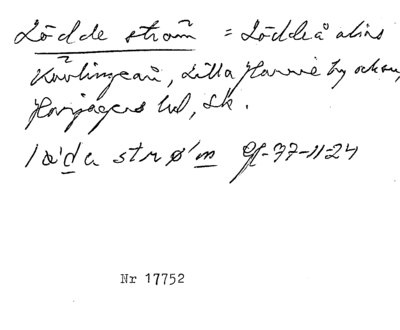 Lödde ström = Löddeå alias
Kävlingeån, Lilla Harrie by och sn,
Harjagers hd, Sk.
lø'dɑ strø'm Gf-77-11-24
Nr 17752